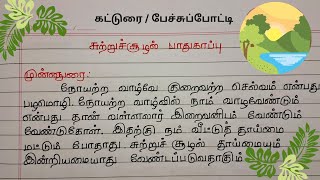 கட்டுரை / பேச்சுப்போட்டி
சுற்றுச்சூழல் பாதுகாப்பு
முன்னுரை:
நோயற்ற வாழ்வே குறைவற்ற செல்வம் என்பது
பழமொழி. நோயற்ற வாழ்வில் நாம் வாழவேண்டும்
என்பது தான் வள்ளலார் இறைவனிடம் வேண்டும்
வேண்டுகோள். இதற்கு நம் வீட்டுத் தூய்மை
மட்டும் போதாது. சுற்றுச் சூழல் தூய்மையும்
இன்றியமையாது வேண்டப்படுவதாகும்.